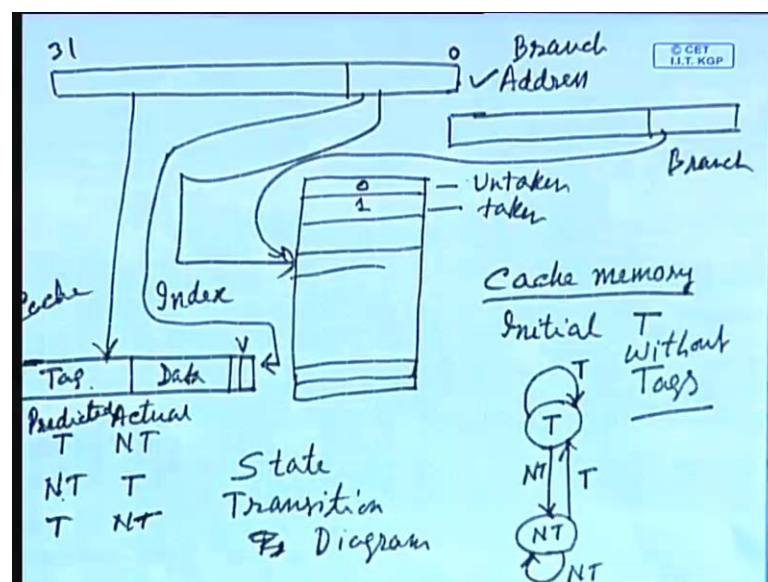 31
0
Branch
✓Address
© CET
I.I.T. KGP
Branch
0
— Untaken
1
— taken
Cache
Index
Cache memory
Initial T
Without
Tags
Tag.
Data
V
Predicted Actual
T NT
NT T
T NT
State
Transition
Diagram
T
T
NT
T
NT
NT